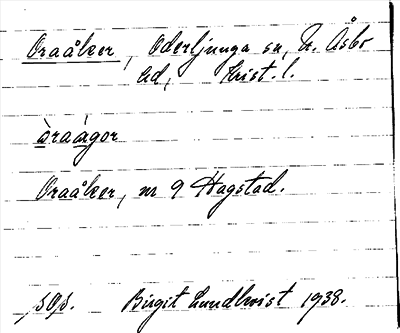 Oraåker, Oderljunga sn, N. Åsbo
hd, Krist. l.
òraågor
Oraåker, nr 9 Hagstad.
sO/s. Birgit Lundkvist 1938.